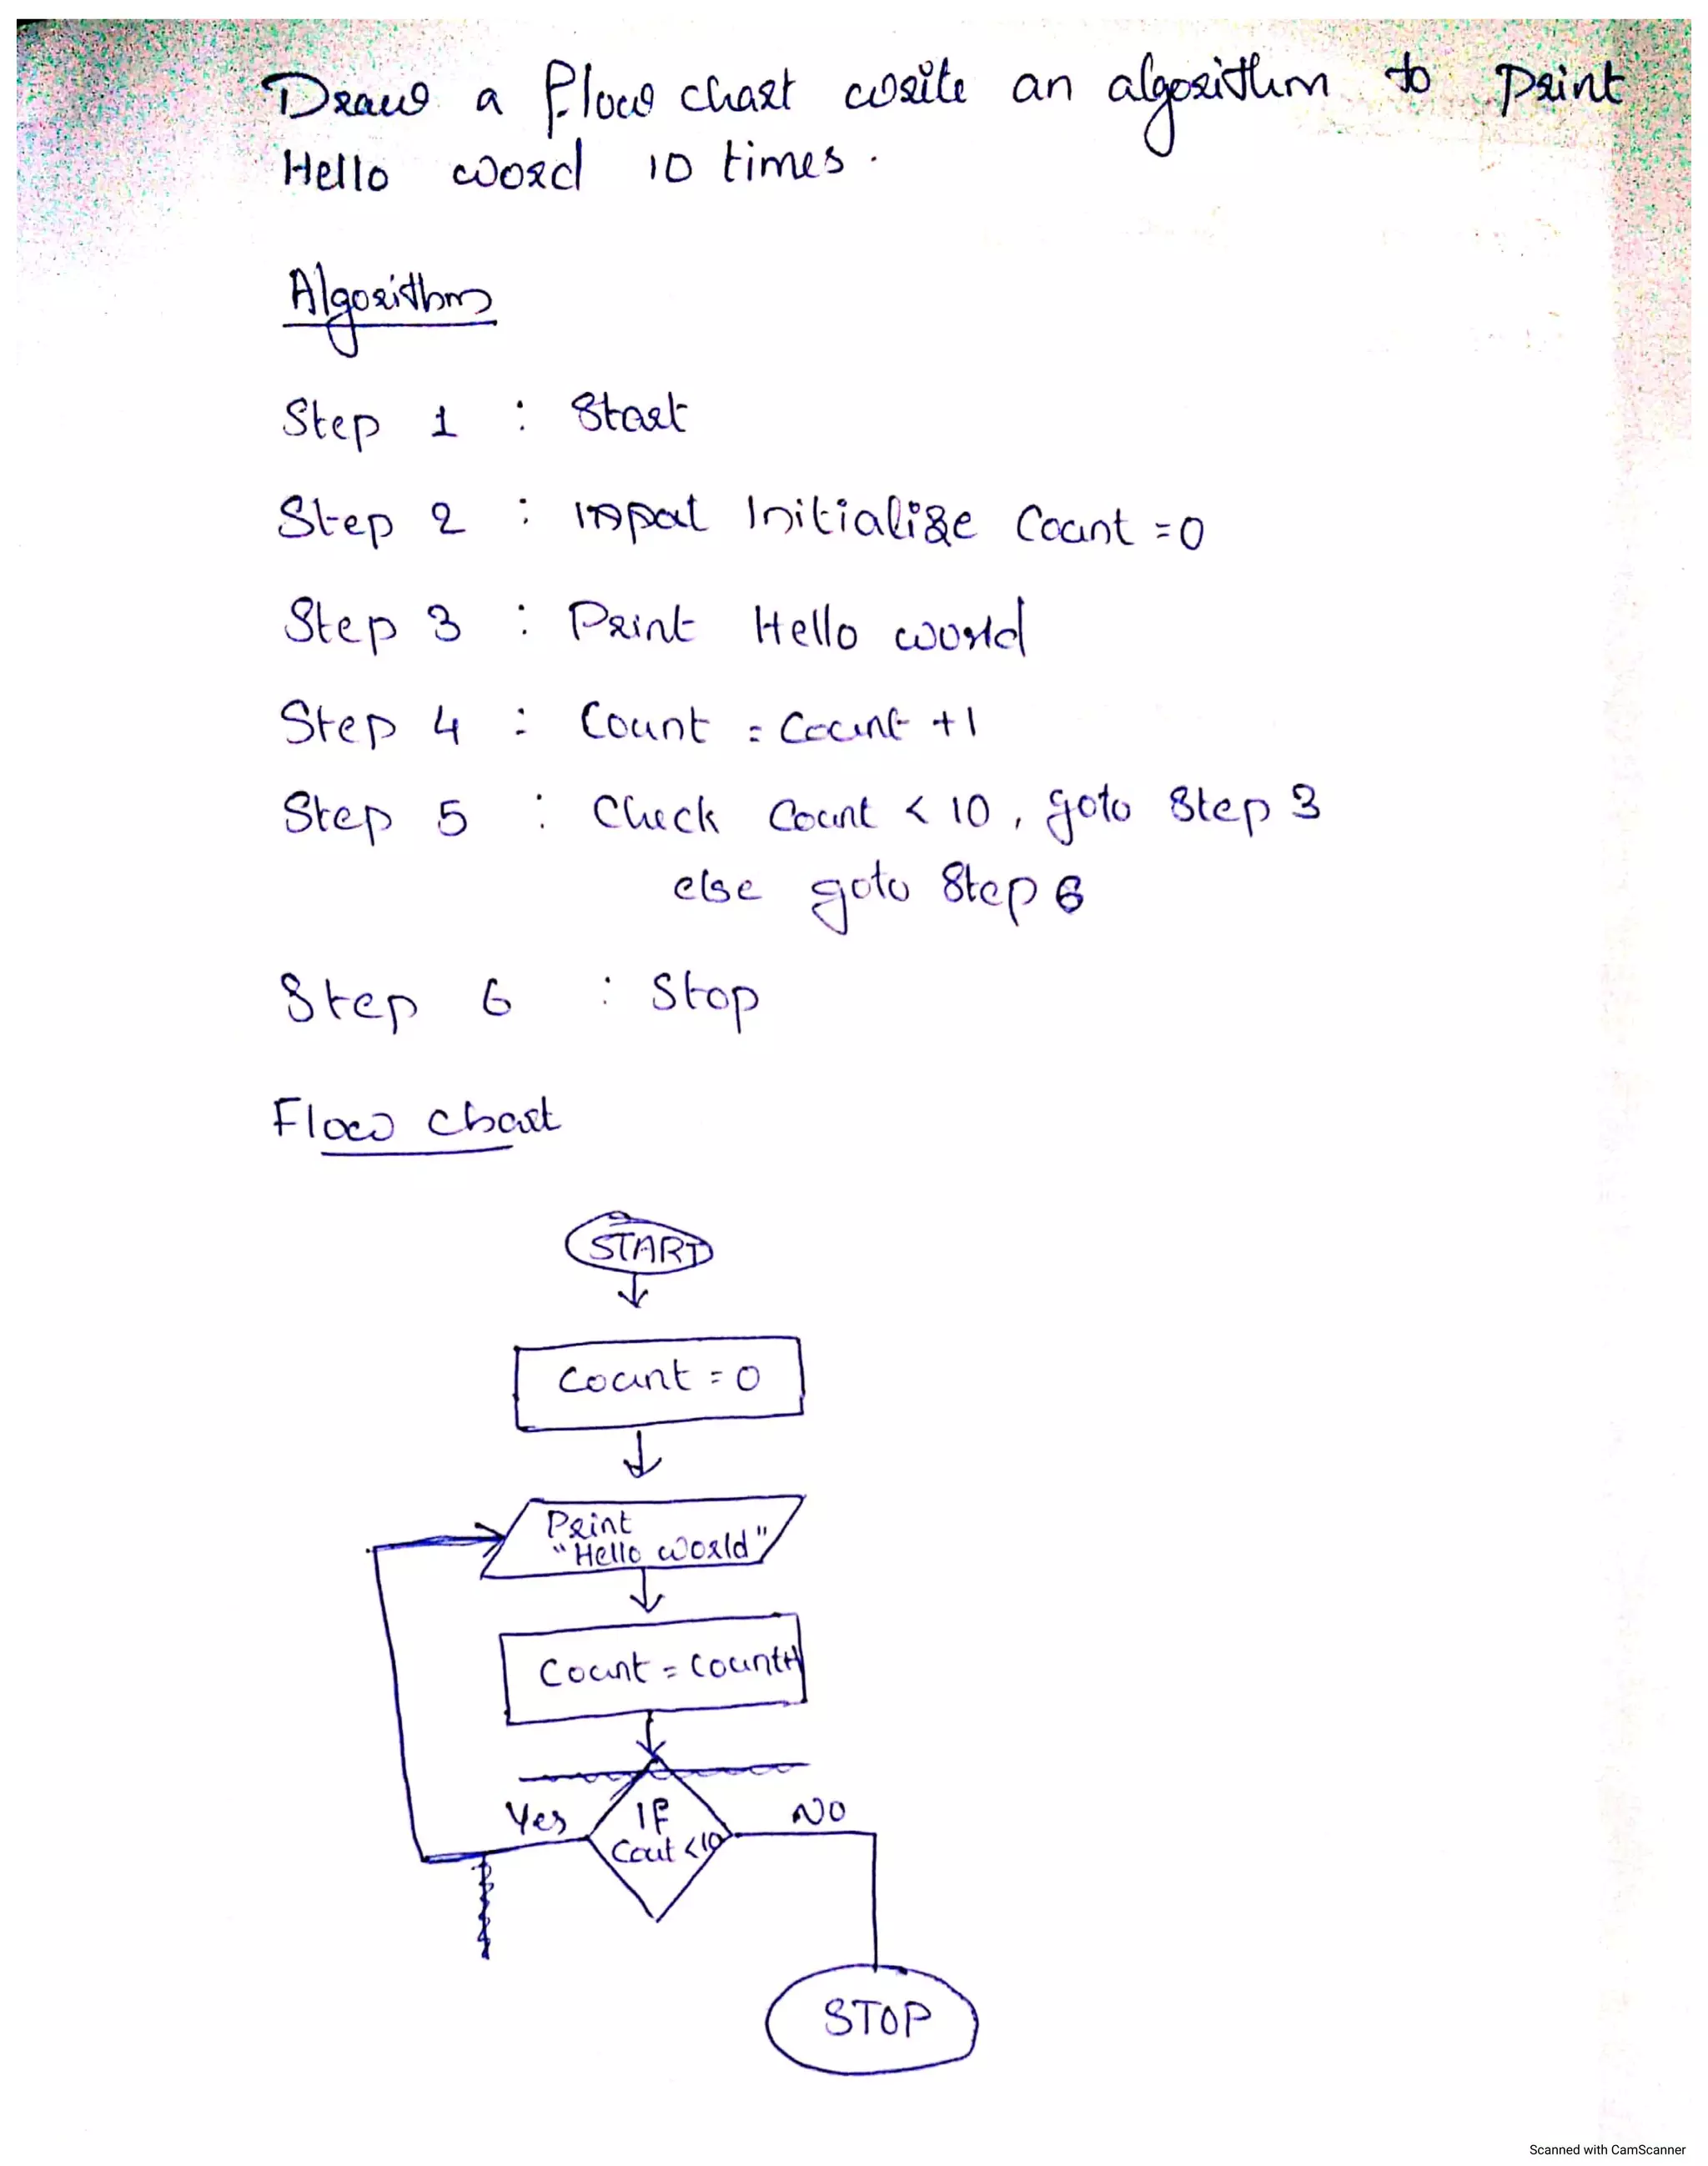 Draw a Flow chart write an algorithm to print
Hello word 10 times.
Algorithm
Step 1 : Start
Step 2 : Input Initialize Count =0
Step 3 : Print Hello world
Step 4 : Count = Count +1
Step 5 : Check Count < 10, goto Step 3
else goto Step 6
Step 6 : Stop
Flow chart
START
Count = 0
Print
"Hello world"
Count = Count+1
Yes
If
Cout <10
NO
STOP
Scanned with CamScanner